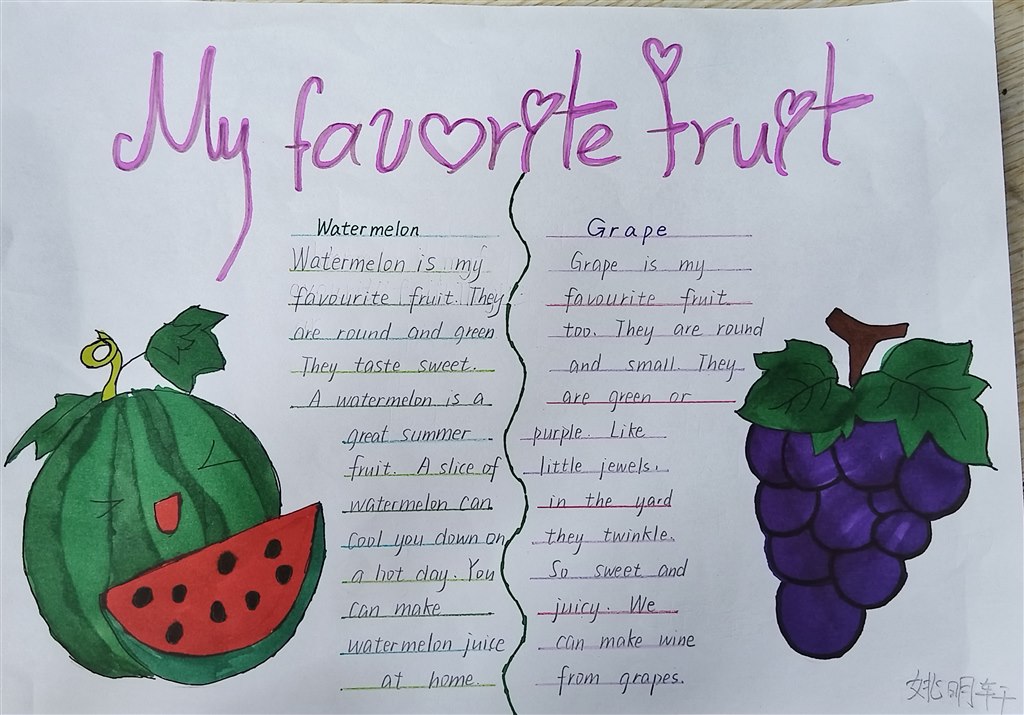 My favorite fruit
Watermelon
Watermelon is my
favourite fruit. They
are round and green
They taste sweet.
A watermelon is a
great summer
fruit. A slice of
watermelon can
cool you down on
a hot day. You
can make
watermelon juice
at home.
Grape
Grape is my
favourite fruit
too. They are round
and small. They
are green or
purple. Like
little jewels.
in the yard
they twinkle.
So sweet and
juicy. We
can make wine
from grapes.
姚明轩